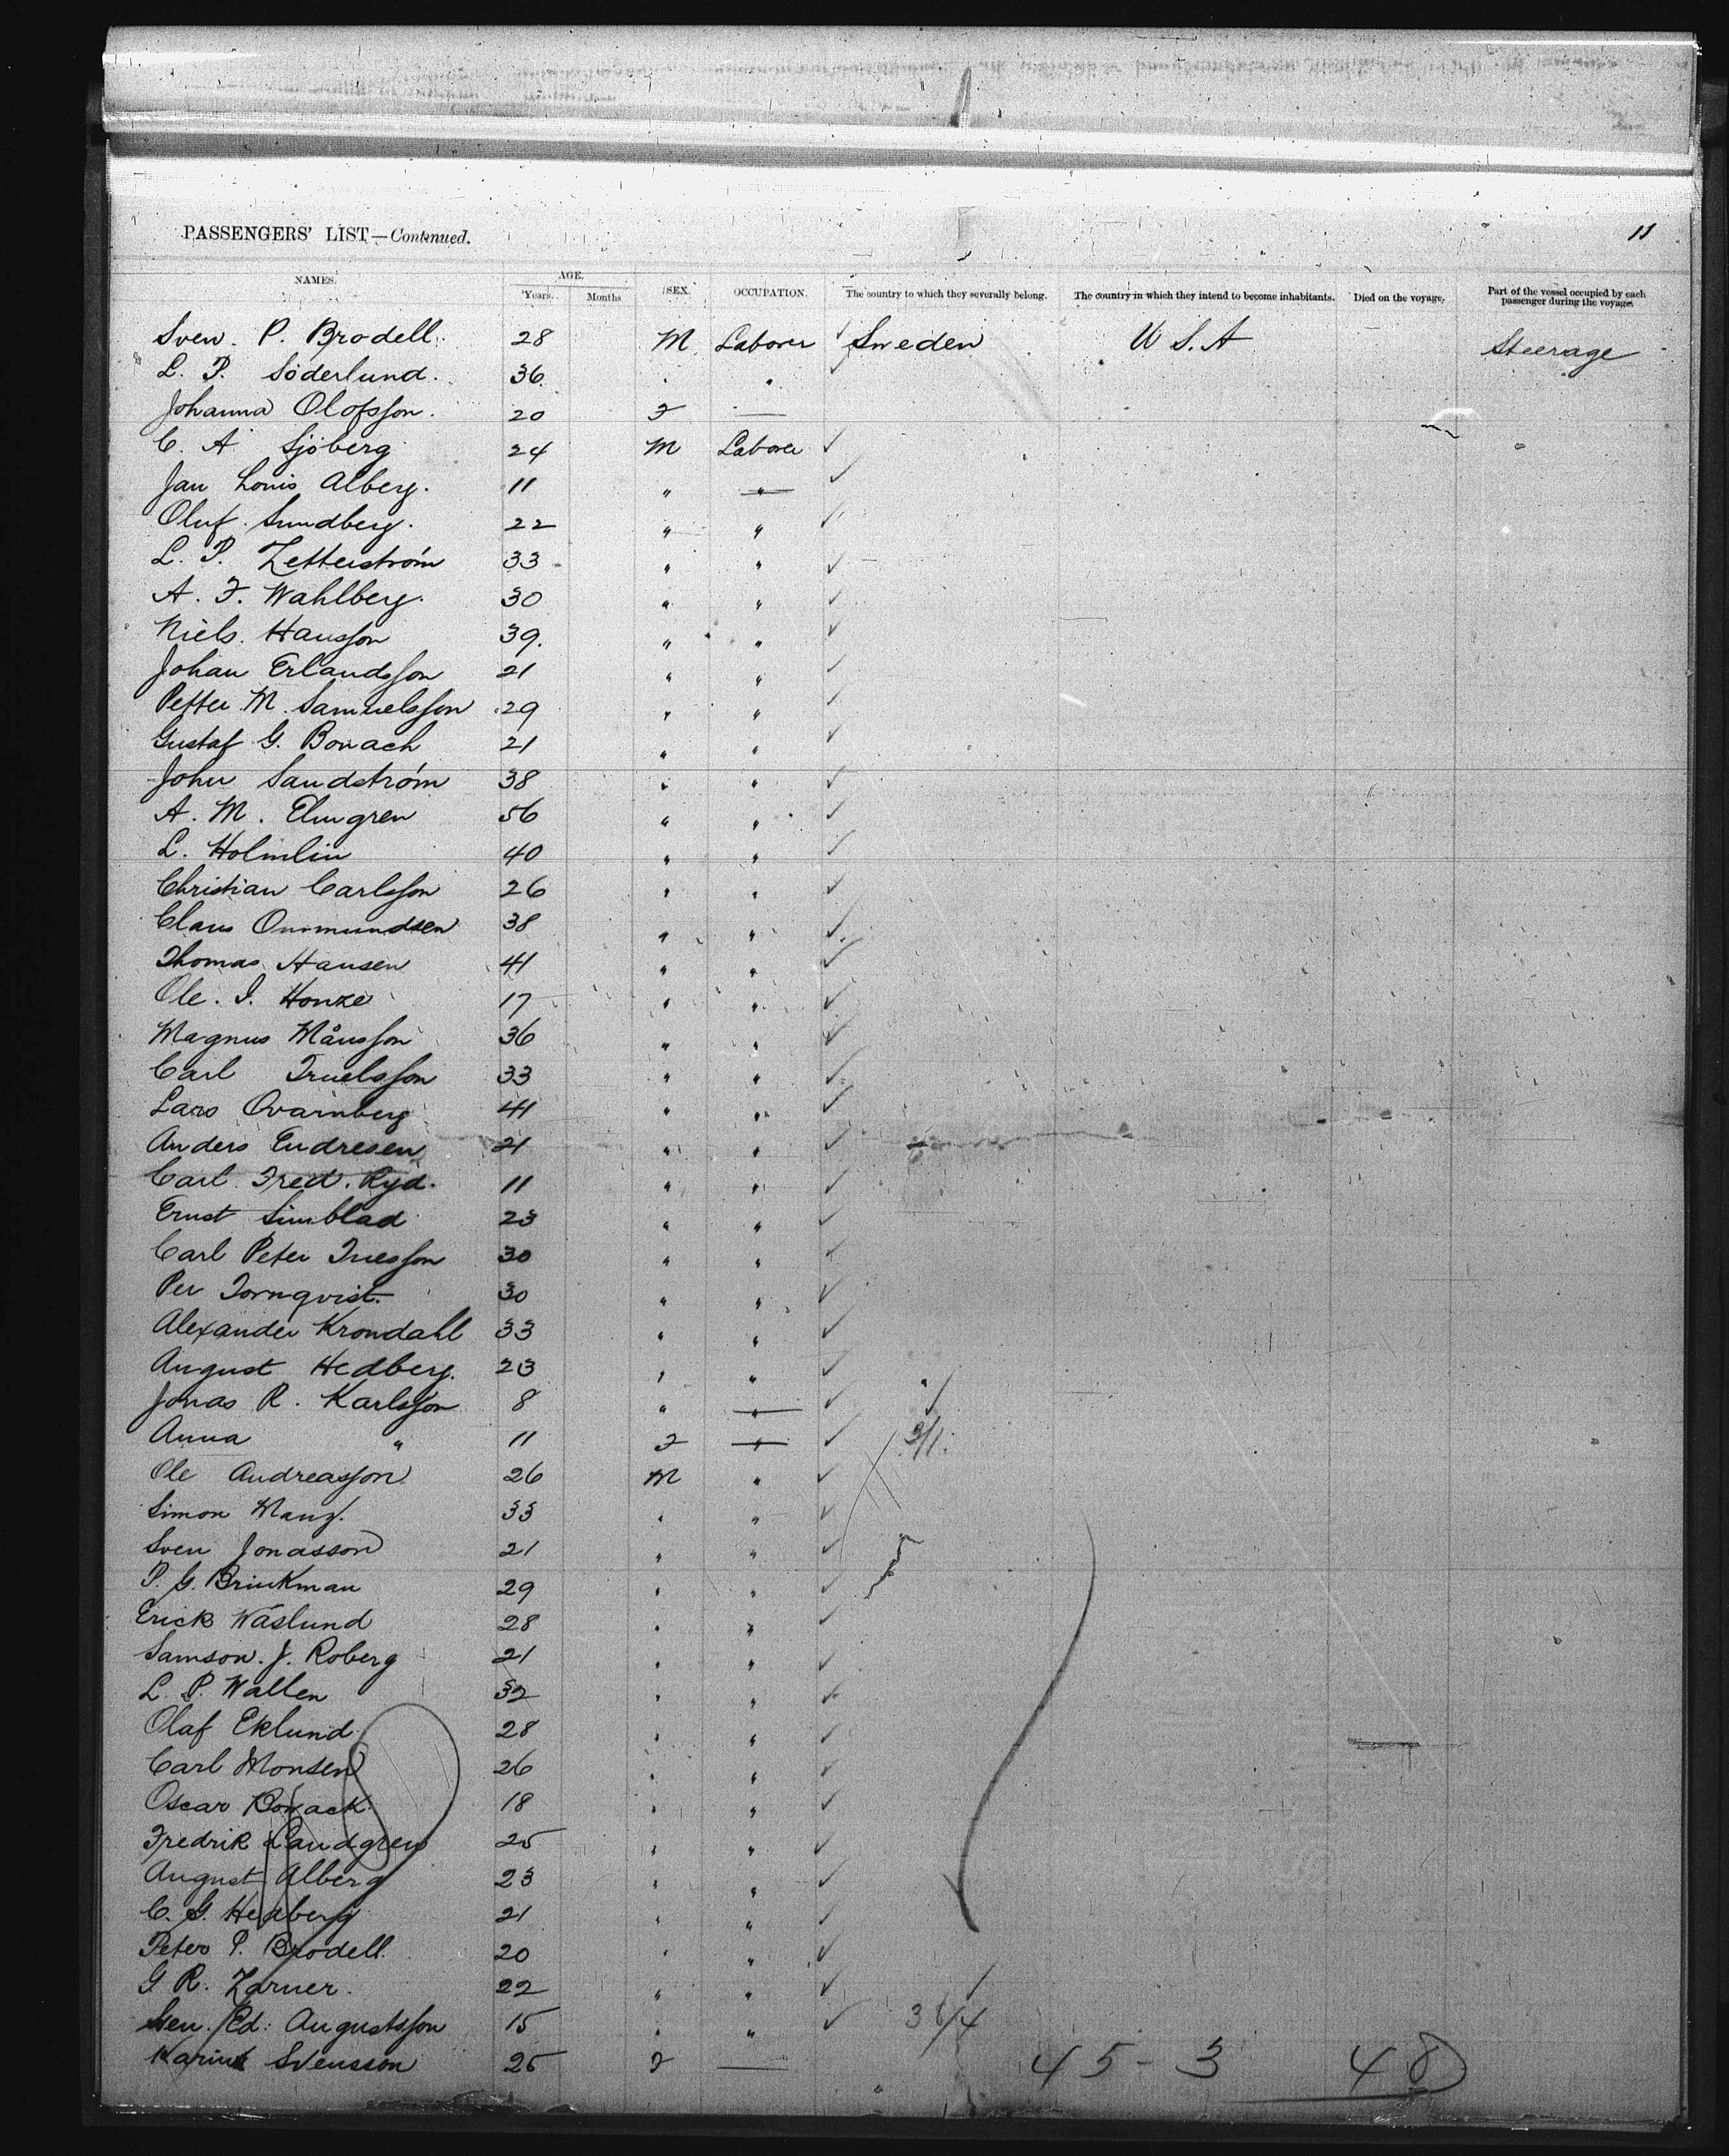 PASSENGERS' LIST—Continued. 11
NAMES. AGE. Years. Months SEX. OCCUPATION. The country to which they severally belong. The country in which they intend to become inhabitants. Died on the voyage. Part of the vessel occupied by each passenger during the voyage.
Sven. P. Brodell. 28 M Laborer ✓ Sweden U S. A Steerage
L. P. Söderlund. 36 " " ✓
Johanna Olofsson. 20 F —
C. A Sjöberg 24 M Laborer ✓
Jan Louis Alberg. 11 " " ✓
Oluf. Sundberg. 22 " " ✓
L. P. Zetterström 33 " " ✓
A. F. Wahlberg. 30 " " ✓
Niels. Hansson 39. " " ✓
Johan Erlandsson 21 " " ✓
Petter. M. Samuelsson 29 " " ✓
Gustaf G. Bonach 21 " " ✓
John Sandström 38 " " ✓
A. M. Elmgren 56 " " ✓
L. Holmlin 40 " " ✓
Christian Carlsson 26 " " ✓
Claus 38 " " ✓
Thomas Hansen 41 " " ✓
Ole. I. 17 " " ✓
Magnus Månsson 36 " " ✓
Carl Truelsson 33 " " ✓
Lars Qvarnberg 41 " " ✓
Anders Endresen 21 " " ✓
Carl Fred. Ryd. 11 " " ✓
Ernst 23 " " ✓
Carl Peter 30 " " ✓
Per Tornqvist. 30 " " ✓
Alexander Krondahl 33 " " ✓
August Hedberg. 23 " " ✓
Jonas R. Karlsson 8 " " ✓
Anna " 11 F " ✓ 3/1.
Ole Andreasson 26 M " ✓
Simon 33 " " ✓
Sven Jonasson 21 " " ✓
P. G. Brinkman 29 " " ✓
Erick Wåslund 28 " " ✓
Samson. J. Roberg 21 " " ✓
L. P. Wallen 32 " " ✓
Olaf Eklund 28 " " ✓
Carl Monsen 26 " " ✓
Oscar Bonack 18 " " ✓
Fredrik Landgren 25 " " ✓
August Alberg 23 " " ✓
C. G. Hedberg 21 " " ✓
Peter P. Brodell. 20 " " ✓
G R. Zarner. 22 " " ✓
Ed: Augustsson 15 " " ✓
Svensson 25 F — 45 - 3 48